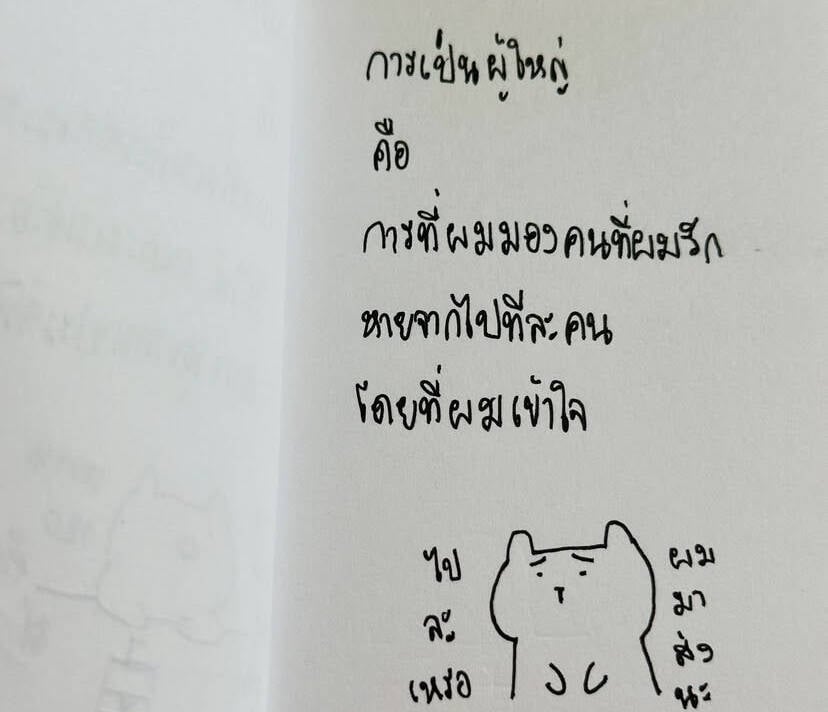 การเป็นผู้ใหญ่
คือ
การที่ผมมองคนที่ผมรัก
หายจากไปทีละคน
โดยที่ผมเข้าใจ
ไป
ละ
เหรอ
ผม
มา
ส่ง
นะ